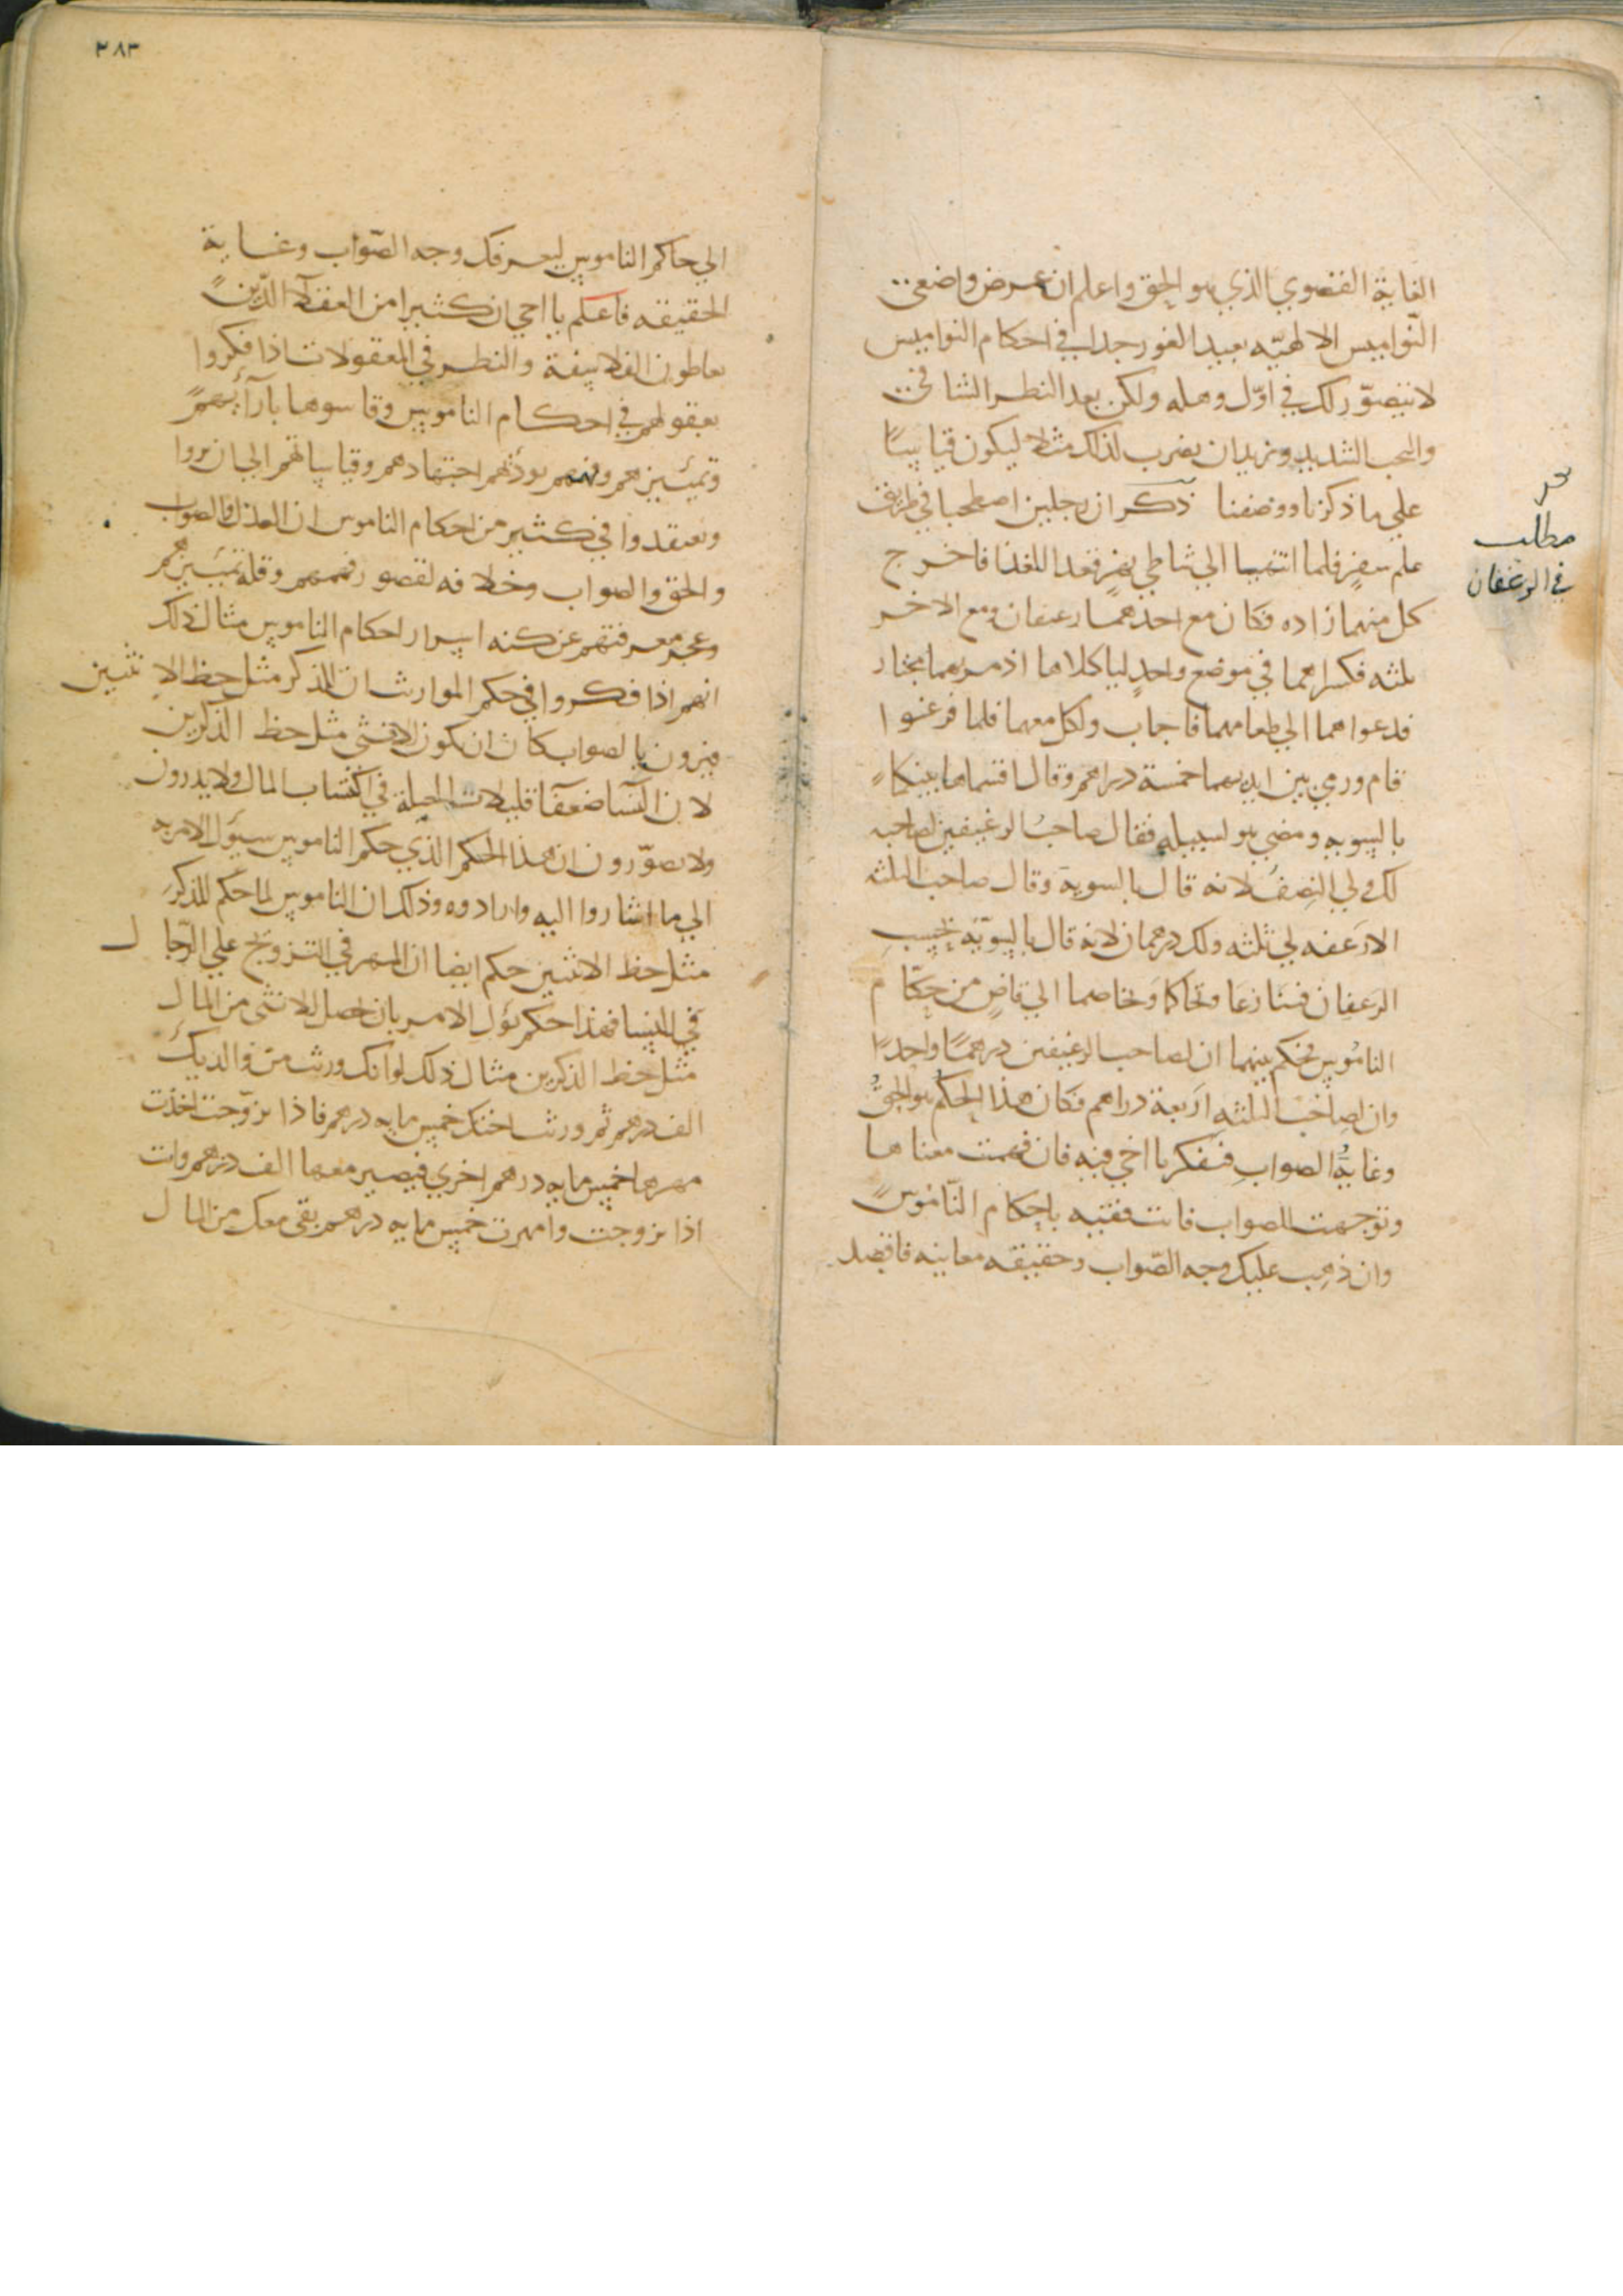 الغاية القصوي الذي هو الحق واعلم ان غرض واضعي
النواميس الالهيّه بعيد الغور جدا في احكام النواميس
لا يتصوّر لك في اوّل وهله ولكن بعد النظر الشافي
والبحث الشديد ونريد ان نضرب لذلك مثلا ليكون قياسًا
علي ما ذكرنا ووصفنا ذكر ان رجلين اصطحبا في طريق
سفرٍ فلما انتهيا الي شاطي نهر قعدا للغدا فاخرج
كل منهما زاده فكان مع احدهما رغيفان ومع الاخر
ثلثه فكسراهما في موضع واحدٍ لياكلاها اذ مر بهما مجتاز
فدعواهما الي طعامهما فاجاب واكل معهما فلما فرغوا
قام ورمي بين ايديهما خمسة دراهم وقال اقتسماها بينكما
بالسويه ومضي هو لسبيله فقال صاحب الرغيفين لصاحبه
لك ولي النصفُ لانه قال بالسوية وقال صاحب الثلثه
الارغفه لي ثلثه ولك درهمان لانه قال بالسويّة بحسب
الرغفان فتنازعا وتحاكما وتخاصما الي قاضٍ من حكّام
الناموس فحكم بينهما ان لصاحب الرغيفين درهمًا واحدًا
وان لصاحب الثلثه اربعة دراهم فكان هذا الحكم هو الحقُّ
وغايةُ الصوابِ فتفكر يا اخي فيه فان فهمت معناها
وتوجهت للصواب فانت فقيه باحكام النّاموس
وان ذهب عليك وجه الصّواب وحقيقه معانيه فاقصد
مطلب
في الرغفان
٣٨٣
الي حاكم الناموس ليعرفك وجه الصّواب وغاية
الحقيقه فاعلم يا اخي ان كثيرا من العقلآ الذّين
يتعاطون الفلاسفة والنظر في المعقولات اذا فكروا
بعقولهم في احكام الناموس وقاسوها بآرآئهم
وتمييزهم وفهمهم يودّهم اجتهادهم وقياساتهم الي ان يروا
ويعتقدوا في كثير من احكام الناموس ان العدل والصواب
والحق والصواب وخلافه لقصور فهمهم وقلة تمييزهم
وعجز معرفتهم عن كنه اسرار احكام الناموس مثال ذلك
انهم اذا فكروا في حكم الموارث ان للذكر مثل حظ الانثيين
فيرون بالصواب كان ان يكون للانثي مثل حظ الذّكرين
لان النّسا ضعفآ قليلات الحيلة في اكتساب المال ولا يدرون
ولا يتصوّرون ان هذا الحكم الذّي حكم الناموس سيؤل الامر به
الي ما اشاروا اليه وارادوه وذلك ان الناموس لما حكم للذكر
مثل حظ الانثيين حكم ايضا ان المهر في التزويج علي الرّجال
في النسا فهذا حكم يؤل الامر بان حصل للانثي من المال
مثل حظ الذكرين مثال ذلك لو انك ورثت من والديك
الف درهم ثم ورثت اختك خمس مايه درهم فاذا تزوّجت اخذت
مهرها خمس مايه درهم اخري فيصير معها الف درهم وانت
اذا تزوجت وامهرت خمس مايه درهم بقي معك من المال